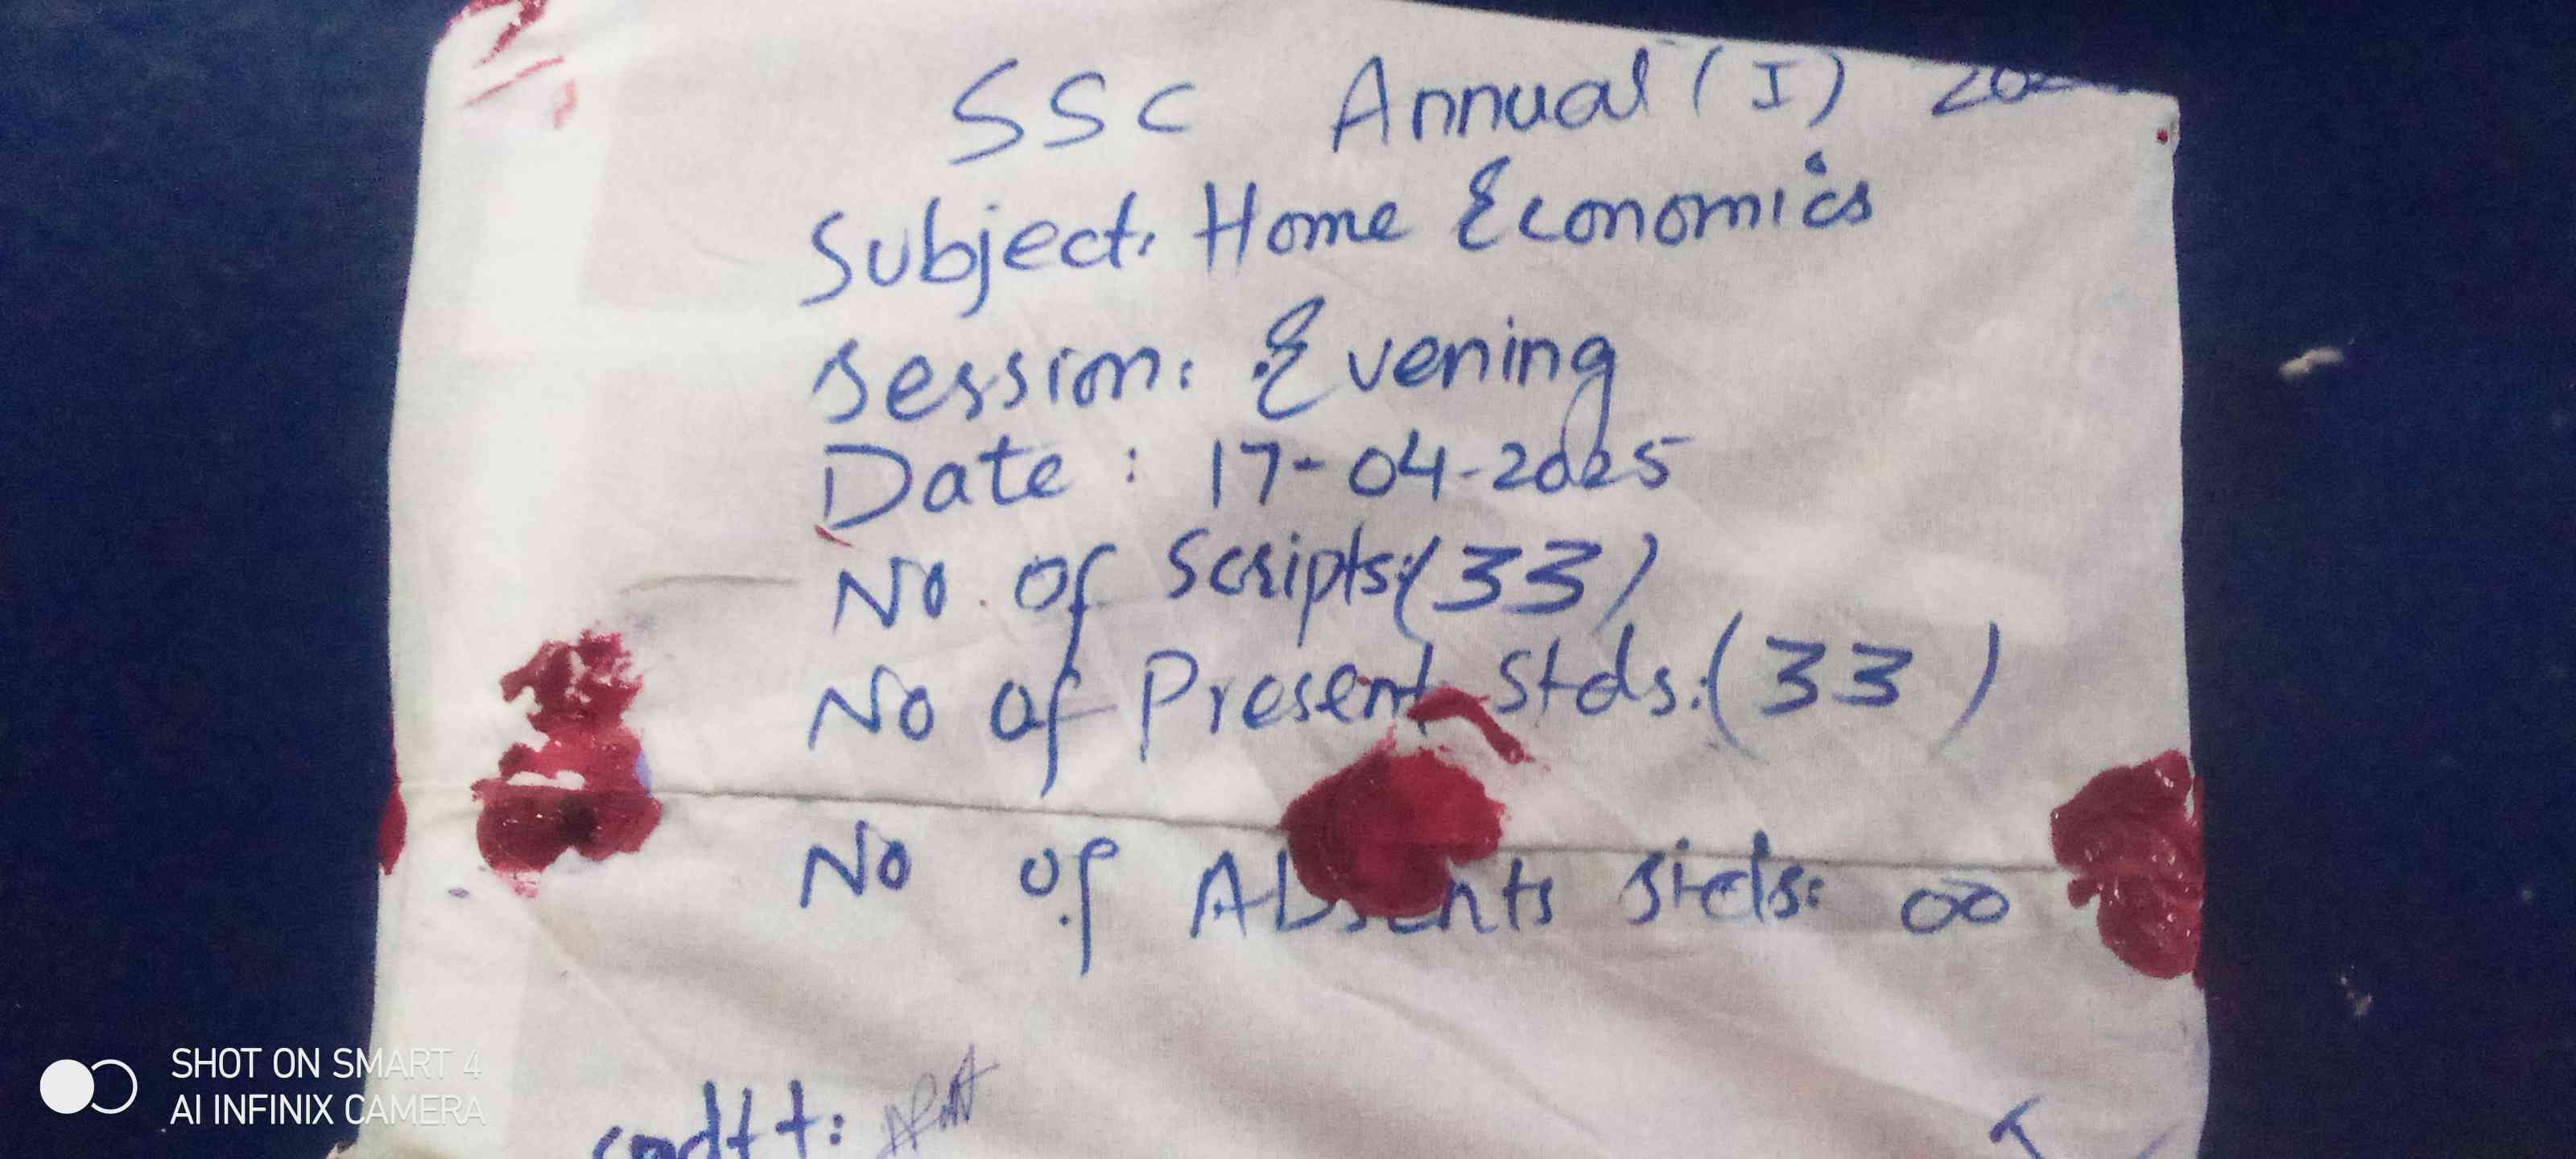 SSC Annual (I)
Subject: Home Economics
Session: Evening
Date : 17-04-2025
No. of Scripts:(33)
No of Present Stds:(33)
No of Absents Stds: 00
SHOT ON SMART 4
AI INFINIX CAMERA